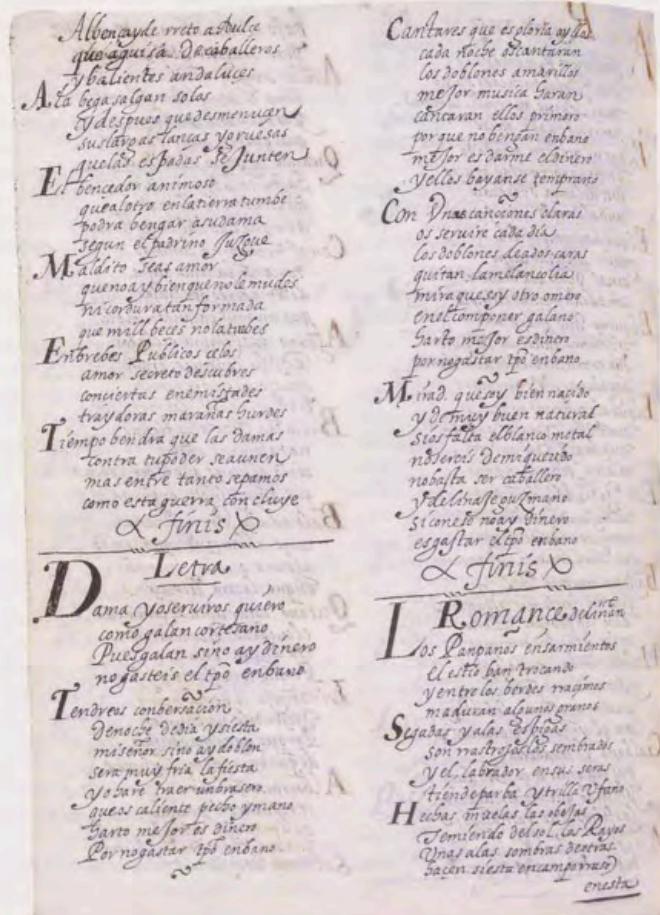 Albençayde rreto a tulce
que a guisa de caballeros
y balientes andaluces
A la bega salgan solos
y despues que desmenucen
sus largas lanças y gruesas
que las espadas se Junten
El bencedor animoso
que al otro en la tierra tumbe
podra bengar a su dama
segun el padrino Juzgue
Maldito seas amor
que no ay bien que no le mudes
ni cordura tan formada
que mill beces no la turbes
En brebes Publicos celos
amor secreto descubres
conciertas enemistades
traydoras marañas hurdes
Tiempo bendra que las damas
contra tu poder se aunen
mas entre tanto sepamos
como esta guerra concluye
finis
Letra
Dama yo serviros quiero
como galan cortesano
Pues galan sino ay dinero
no gasteis el tpõ enbano
Tendreos conbersaçion
de noche de dia y siesta
mi señor sino ay doblon
sera muy fria la fiesta
yo hare traer un brasero
que os caliente pecho y mano
harto meJor es dinero
Por no gastar tpõ enbano
Cantares que es gloria oyllos
cada noche os cantaran
los doblones amarillos
meJor musica haran
cantaran ellos primero
por que no bengan enbano
meJor es darme el dinero
y ellos bayanse temprano
Con Unas canciones claras
os servire cada dia
los doblones de a dos caras
quitan la melancolia
mira que soy otro omero
en el componer galano
harto meJor es dinero
por no gastar tpõ enbano
Mirad que soy bien nacido
y de muy buen natural
si os falta el blanco metal
no sereis de mi querido
no basta ser caballero
y de linaJe guzmano
si con eso no ay dinero
es gastar el tpõ enbano
finis
Romance de liñan
Los Panpanos en sarmientos
el estio ban trocando
y entre los berdes rracimos
maduran algunos granos
Segadas ya las espigas
son rrastroJos los sembrados
y el labrador en sus heras
tiende parba y trilla Ufano
Hechas muelas las obeJas
Temiendo del sol los Rayos
Unas a las sombras de otras
hacen siesta en campo rraso
en esta